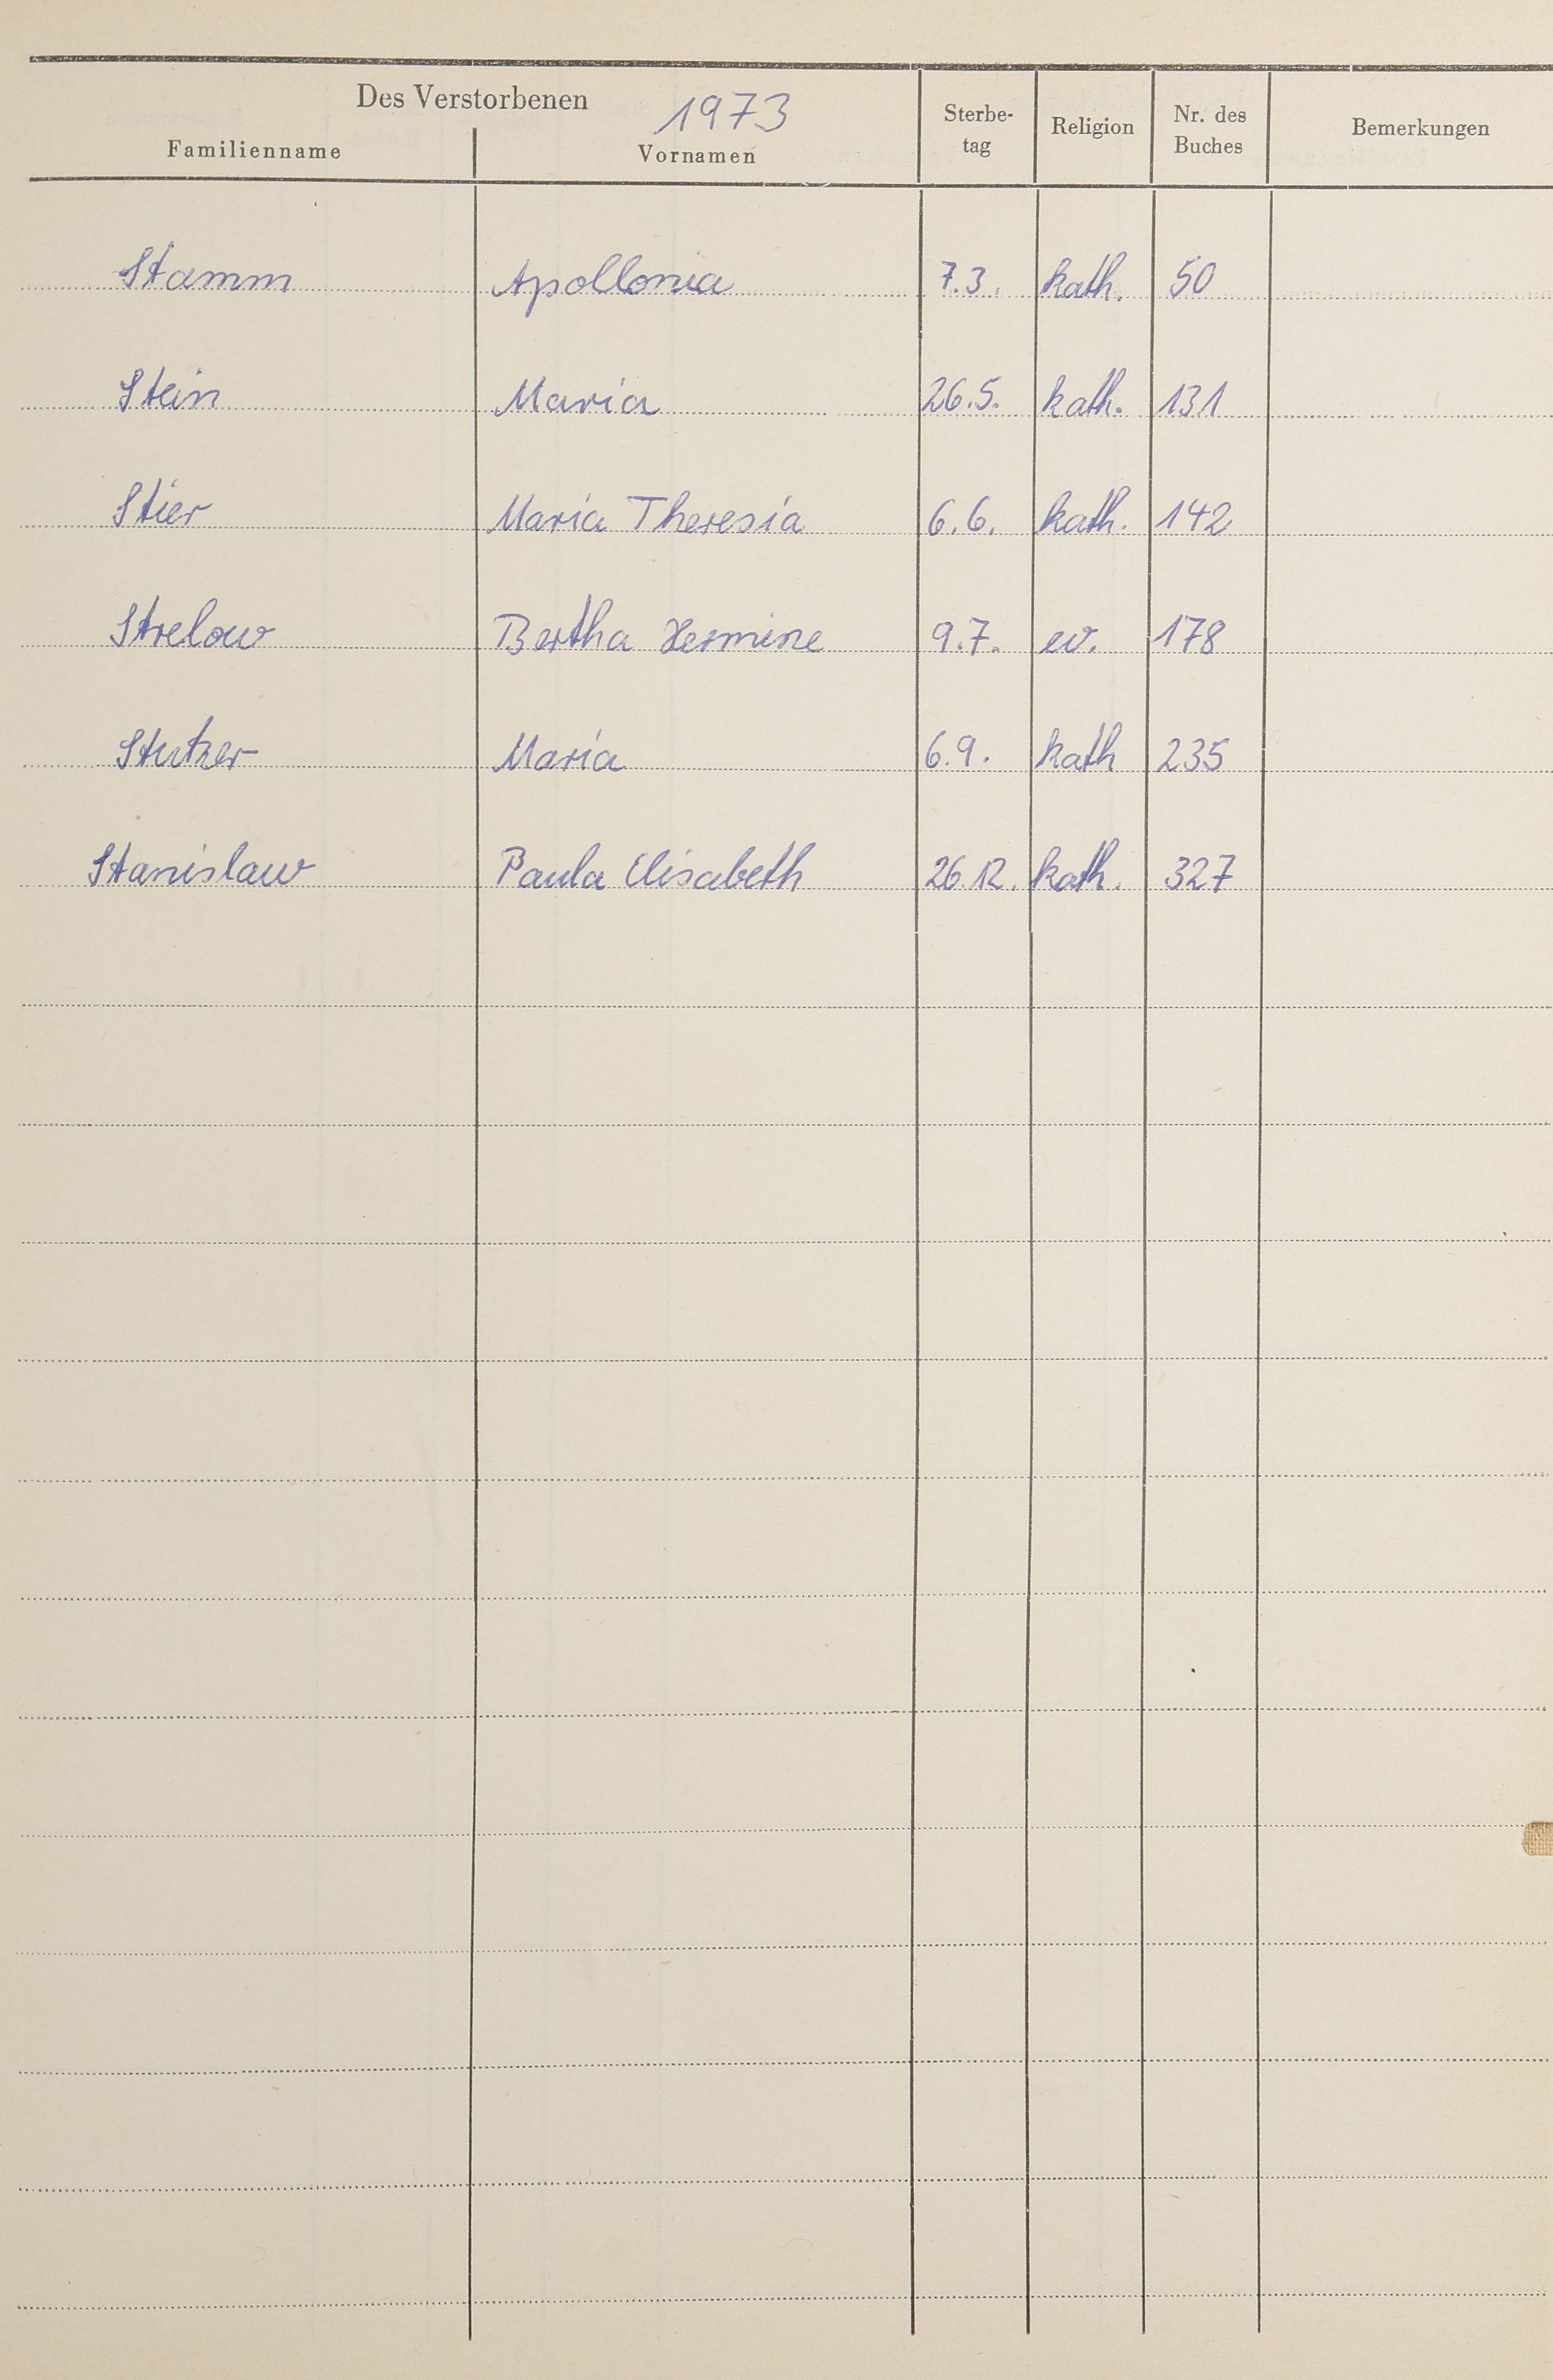 Des Verstorbenen 1973
Familienname Vornamen Sterbe-tag Religion Nr. des Buches Bemerkungen
Stamm Apollonia 7.3. kath. 50
Stein Maria 26.5. kath. 131
Stier Maria Theresia 6.6. kath. 142
Strelow Bertha Hermine 9.7. ev. 178
Stutzer Maria 6.9. kath 235
Stanislaw Paula Elisabeth 26.12. kath. 327